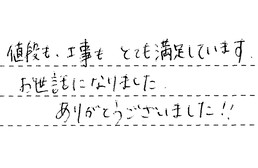 値段も、工事も とても満足しています.
お世話になりました.
ありがとうございました!!